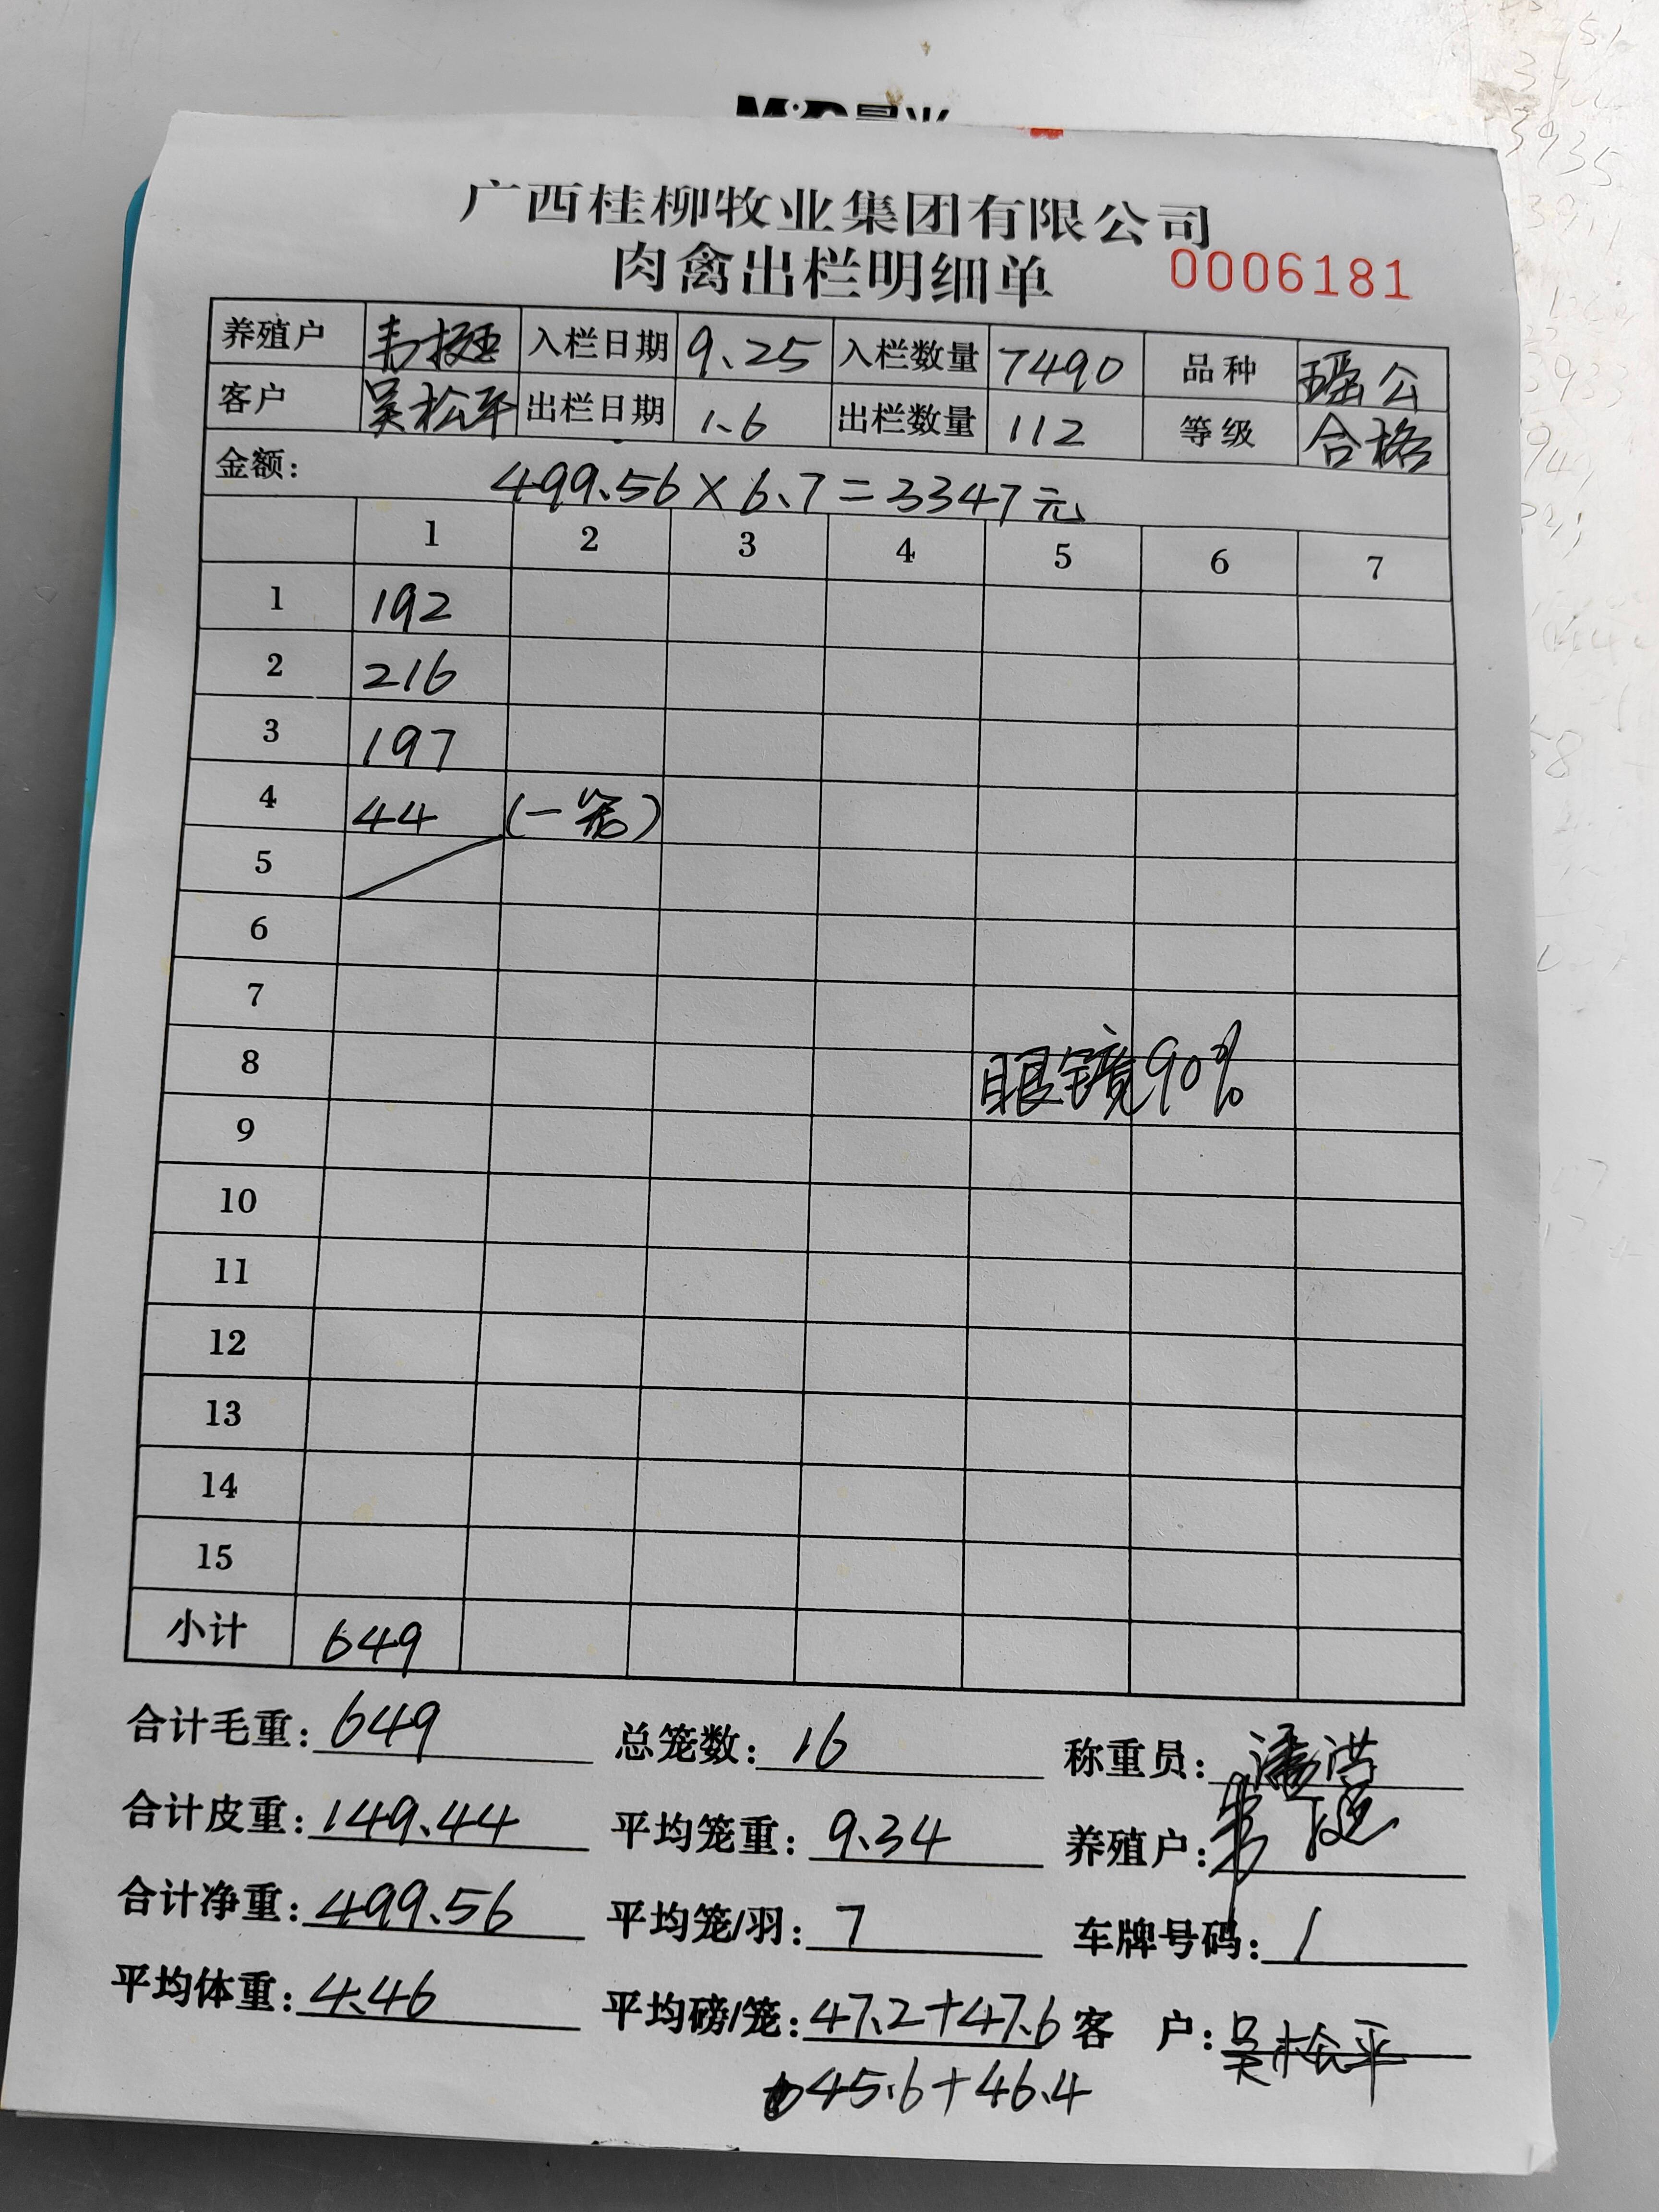 广西桂柳牧业集团有限公司
肉禽出栏明细单 0006181
养殖户 韦 入栏日期 9.25 入栏数量 7490 品种 瑶公
客户 吴松平 出栏日期 1.6 出栏数量 112 等级 合格
金额: 499.56×6.7=3347元
1 2 3 4 5 6 7
1 192
2 216
3 197
4 44 (一笼)
5
6
7
8 眼镜90%
9
10
11
12
13
14
15
小计 649
合计毛重: 649 总笼数: 16 称重员: 潘洪
合计皮重: 149.44 平均笼重: 9.34 养殖户: 韦
合计净重: 499.56 平均笼/羽: 7 车牌号码: 1
平均体重: 4.46 平均磅/笼: 47.2+47.6 客 户: 吴松平
45.6+46.4